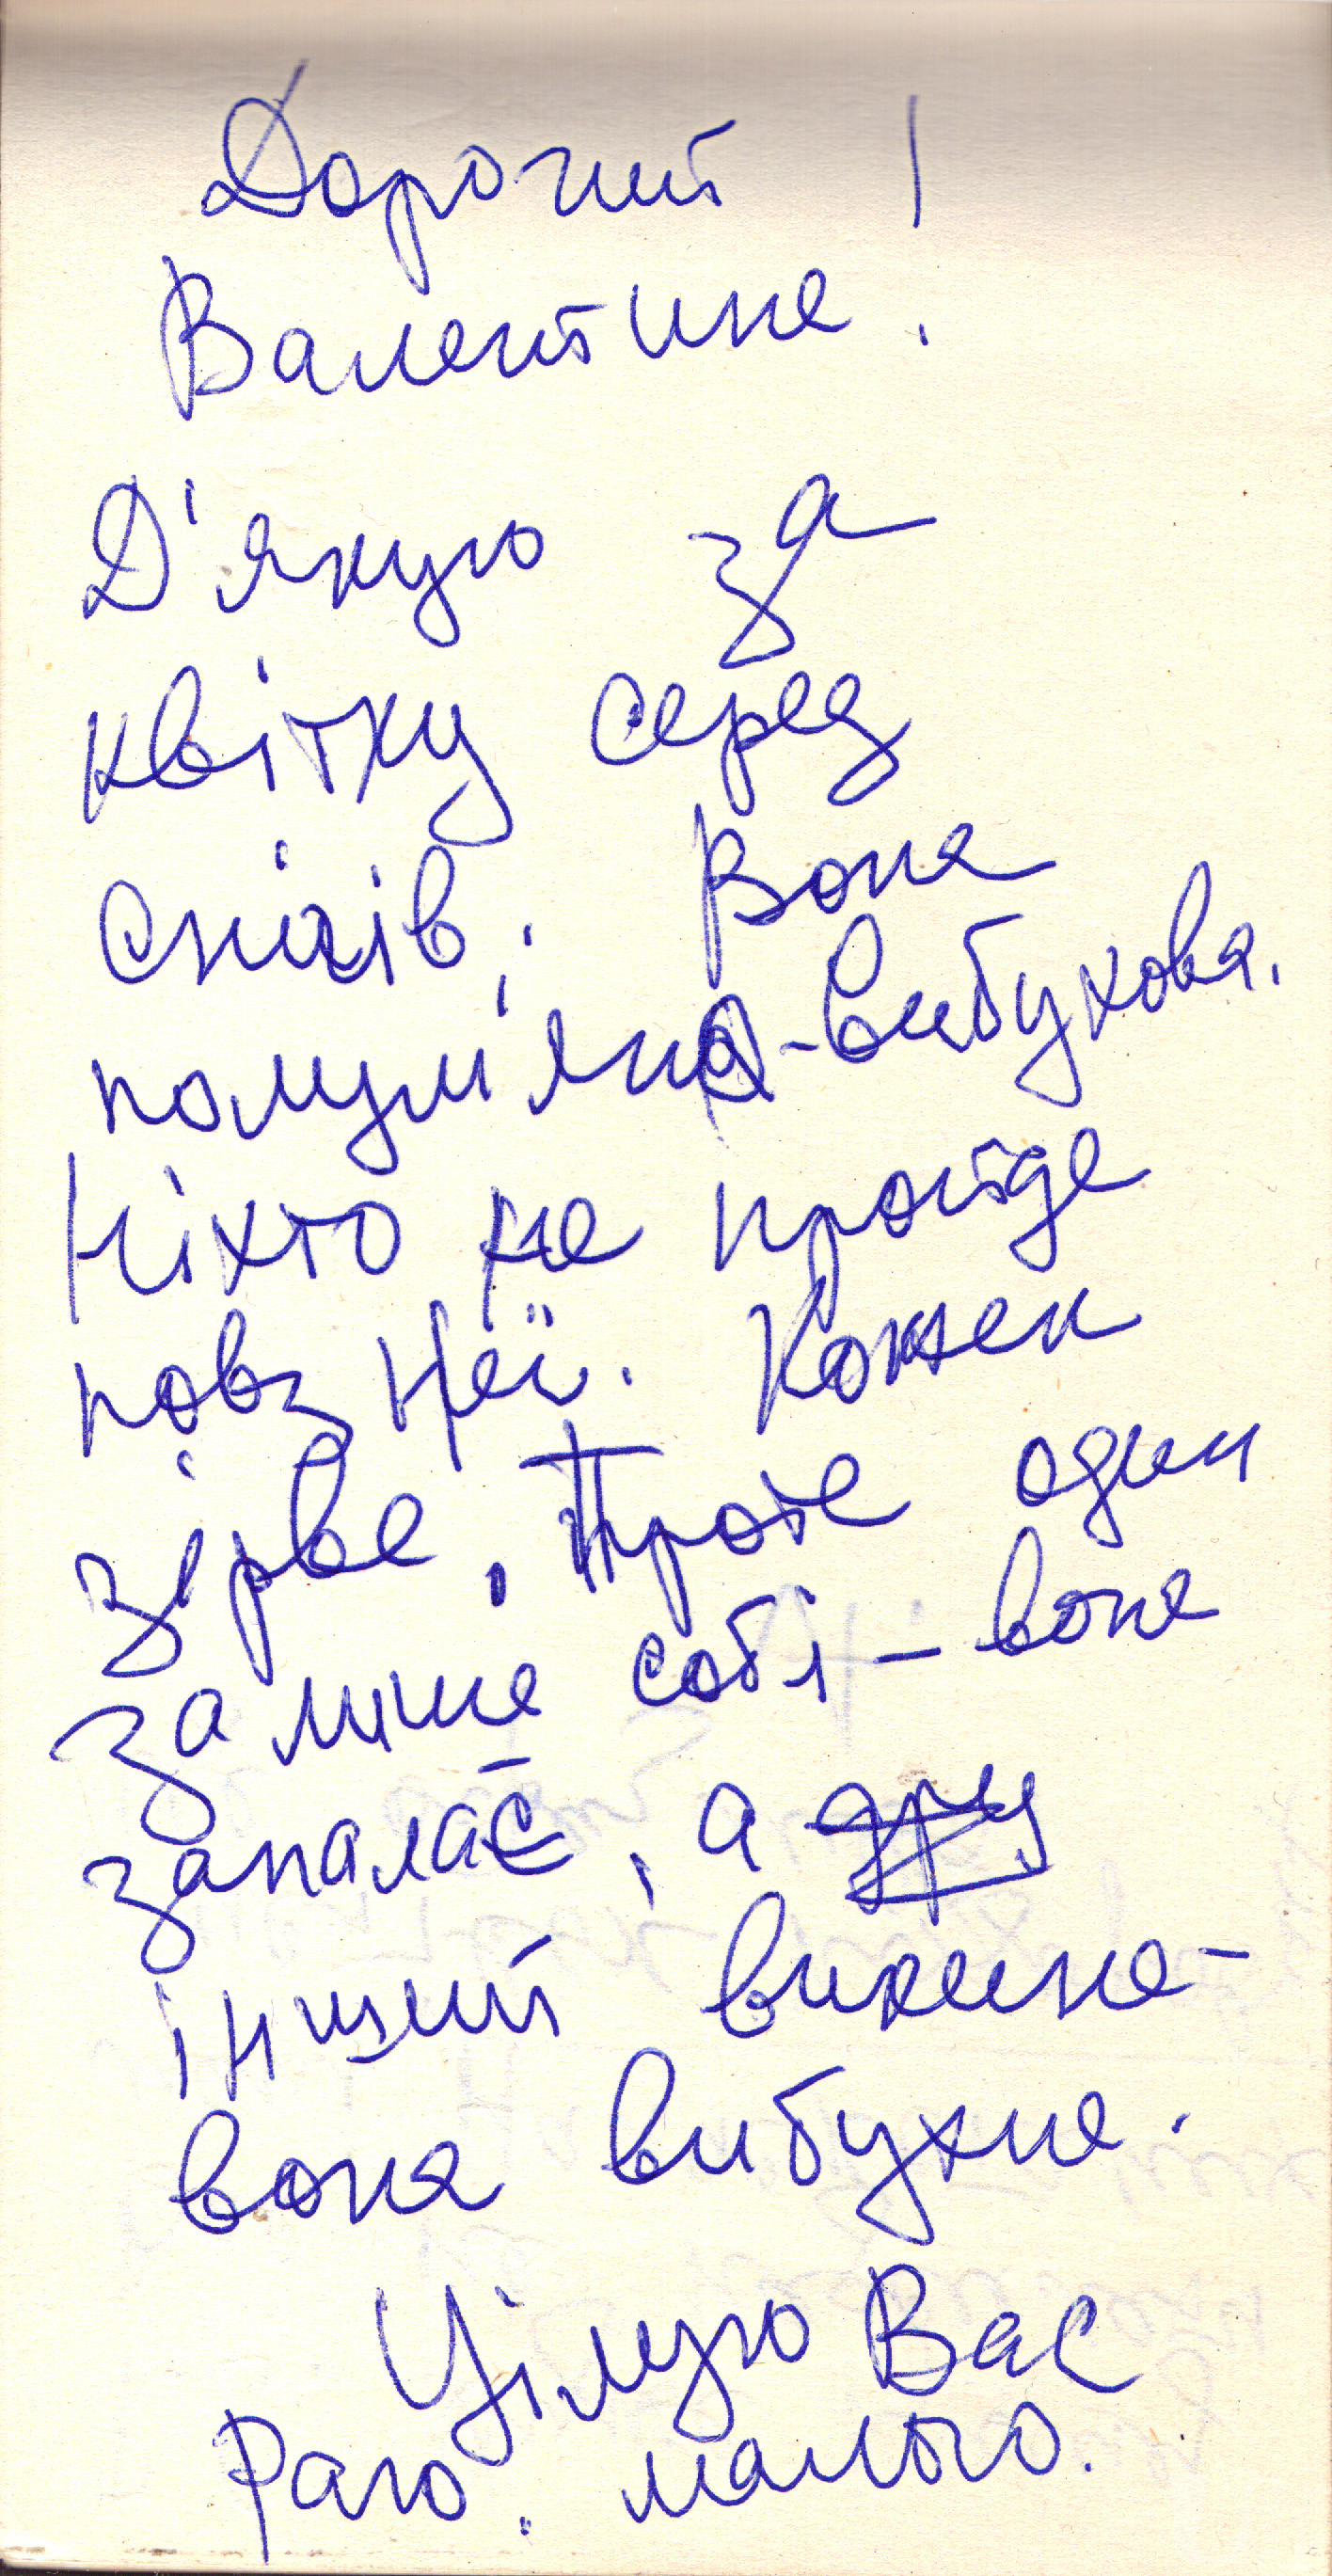 Дорогий
Валентине!
Д'якую за
квітку серед
снігів. Вона
полум'яно-вибухова.
Ніхто не пройде
повз неї. Кожен
зірве. Проте один
залише собі – вона
запалає, а дру
інший викине –
вона вибухне.
Цілую Вас
Раю. малого.